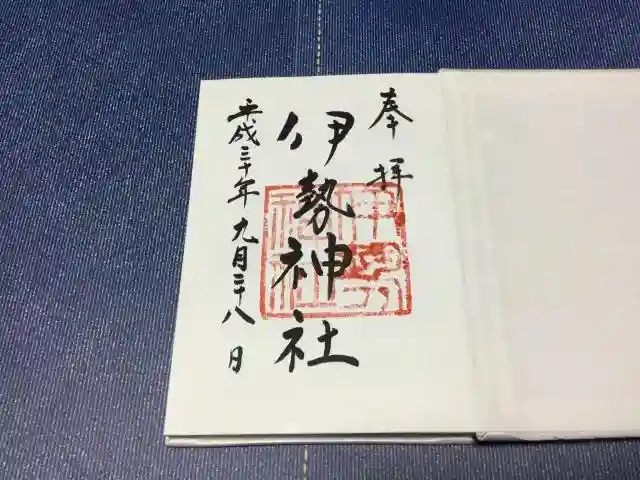 奉拝
伊勢神社
伊勢神社
平成三十年九月二十八日